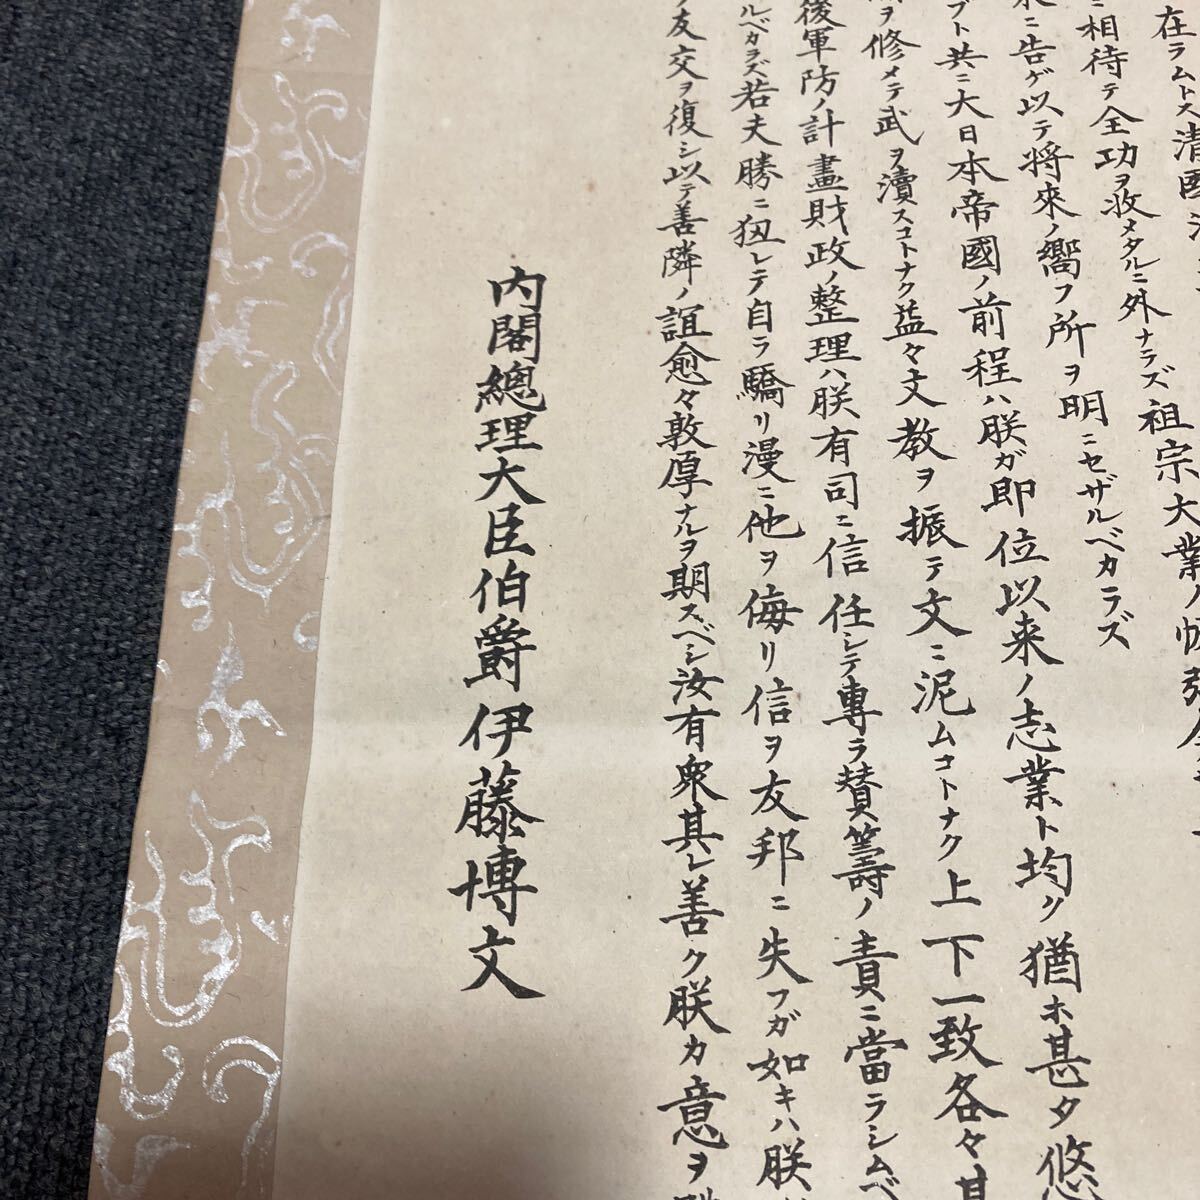 在ラムトス清國
ニ相待テ全功ヲ收メタルニ外ナラズ祖宗大業ノ恢張
ニ告ゲ以テ將來ノ嚮フ所ヲ明ニセザルベカラズ
ブト共ニ大日本帝國ノ前程ハ朕ガ即位以来ノ志業ト均ク猶ホ甚タ悠
ヲ修メテ武ヲ瀆スコトナク益々文教ヲ振テ文ニ泥ムコトナク上下一致各々其
後軍防ノ計畫財政ノ整理ハ朕有司ニ信任シテ專ラ賛籌ノ責ニ當ラシムベ
ルベカラズ若夫勝ニ狃レテ自ラ驕リ漫ニ他ヲ侮リ信ヲ友邦ニ失フガ如キハ朕
友交ヲ復シ以テ善隣ノ誼愈々敦厚ナルヲ期スベシ汝有衆其レ善ク朕カ意ヲ
内閣總理大臣伯爵伊藤博文